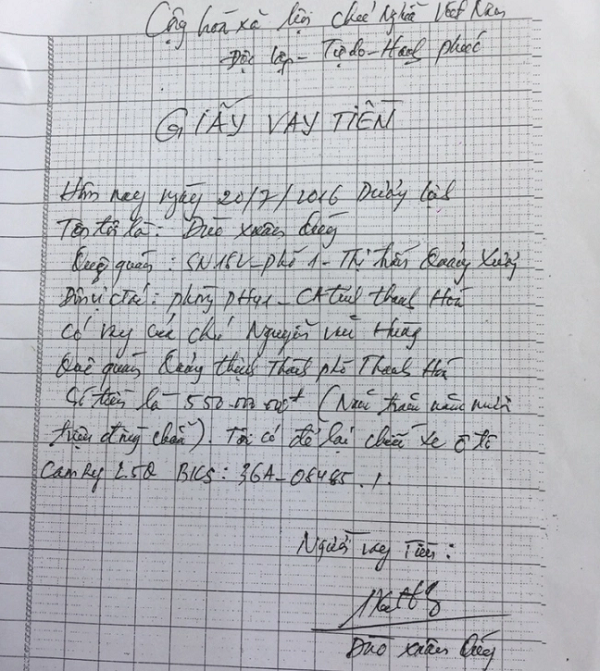 Cộng hoà xã hội chủ Nghĩa Việt Nam
Độc lập - Tự do - Hạnh phúc
GIẤY VAY TIỀN
Hôm nay ngày 20/7/2016 Dương lịch
Tên tôi là: Đào Xuân
Quê quán: SN 18 - phố 1 - Thị trấn Quảng Xương
Đơn vị c tác: phòng PH41 - CA tỉnh thanh Hoá
Có vay của chú Nguyễn Hưng
Quê quán Quảng thịnh Thành phố Thanh Hoá
Số tiền là 550.000.000đ (Năm trăm năm mươi
triệu đồng chẵn). Tôi có để lại chiếc xe ô tô
CamRy 2.5Q BKS: 36A-08485./.
Người vay Tiền:
Đào Xuân